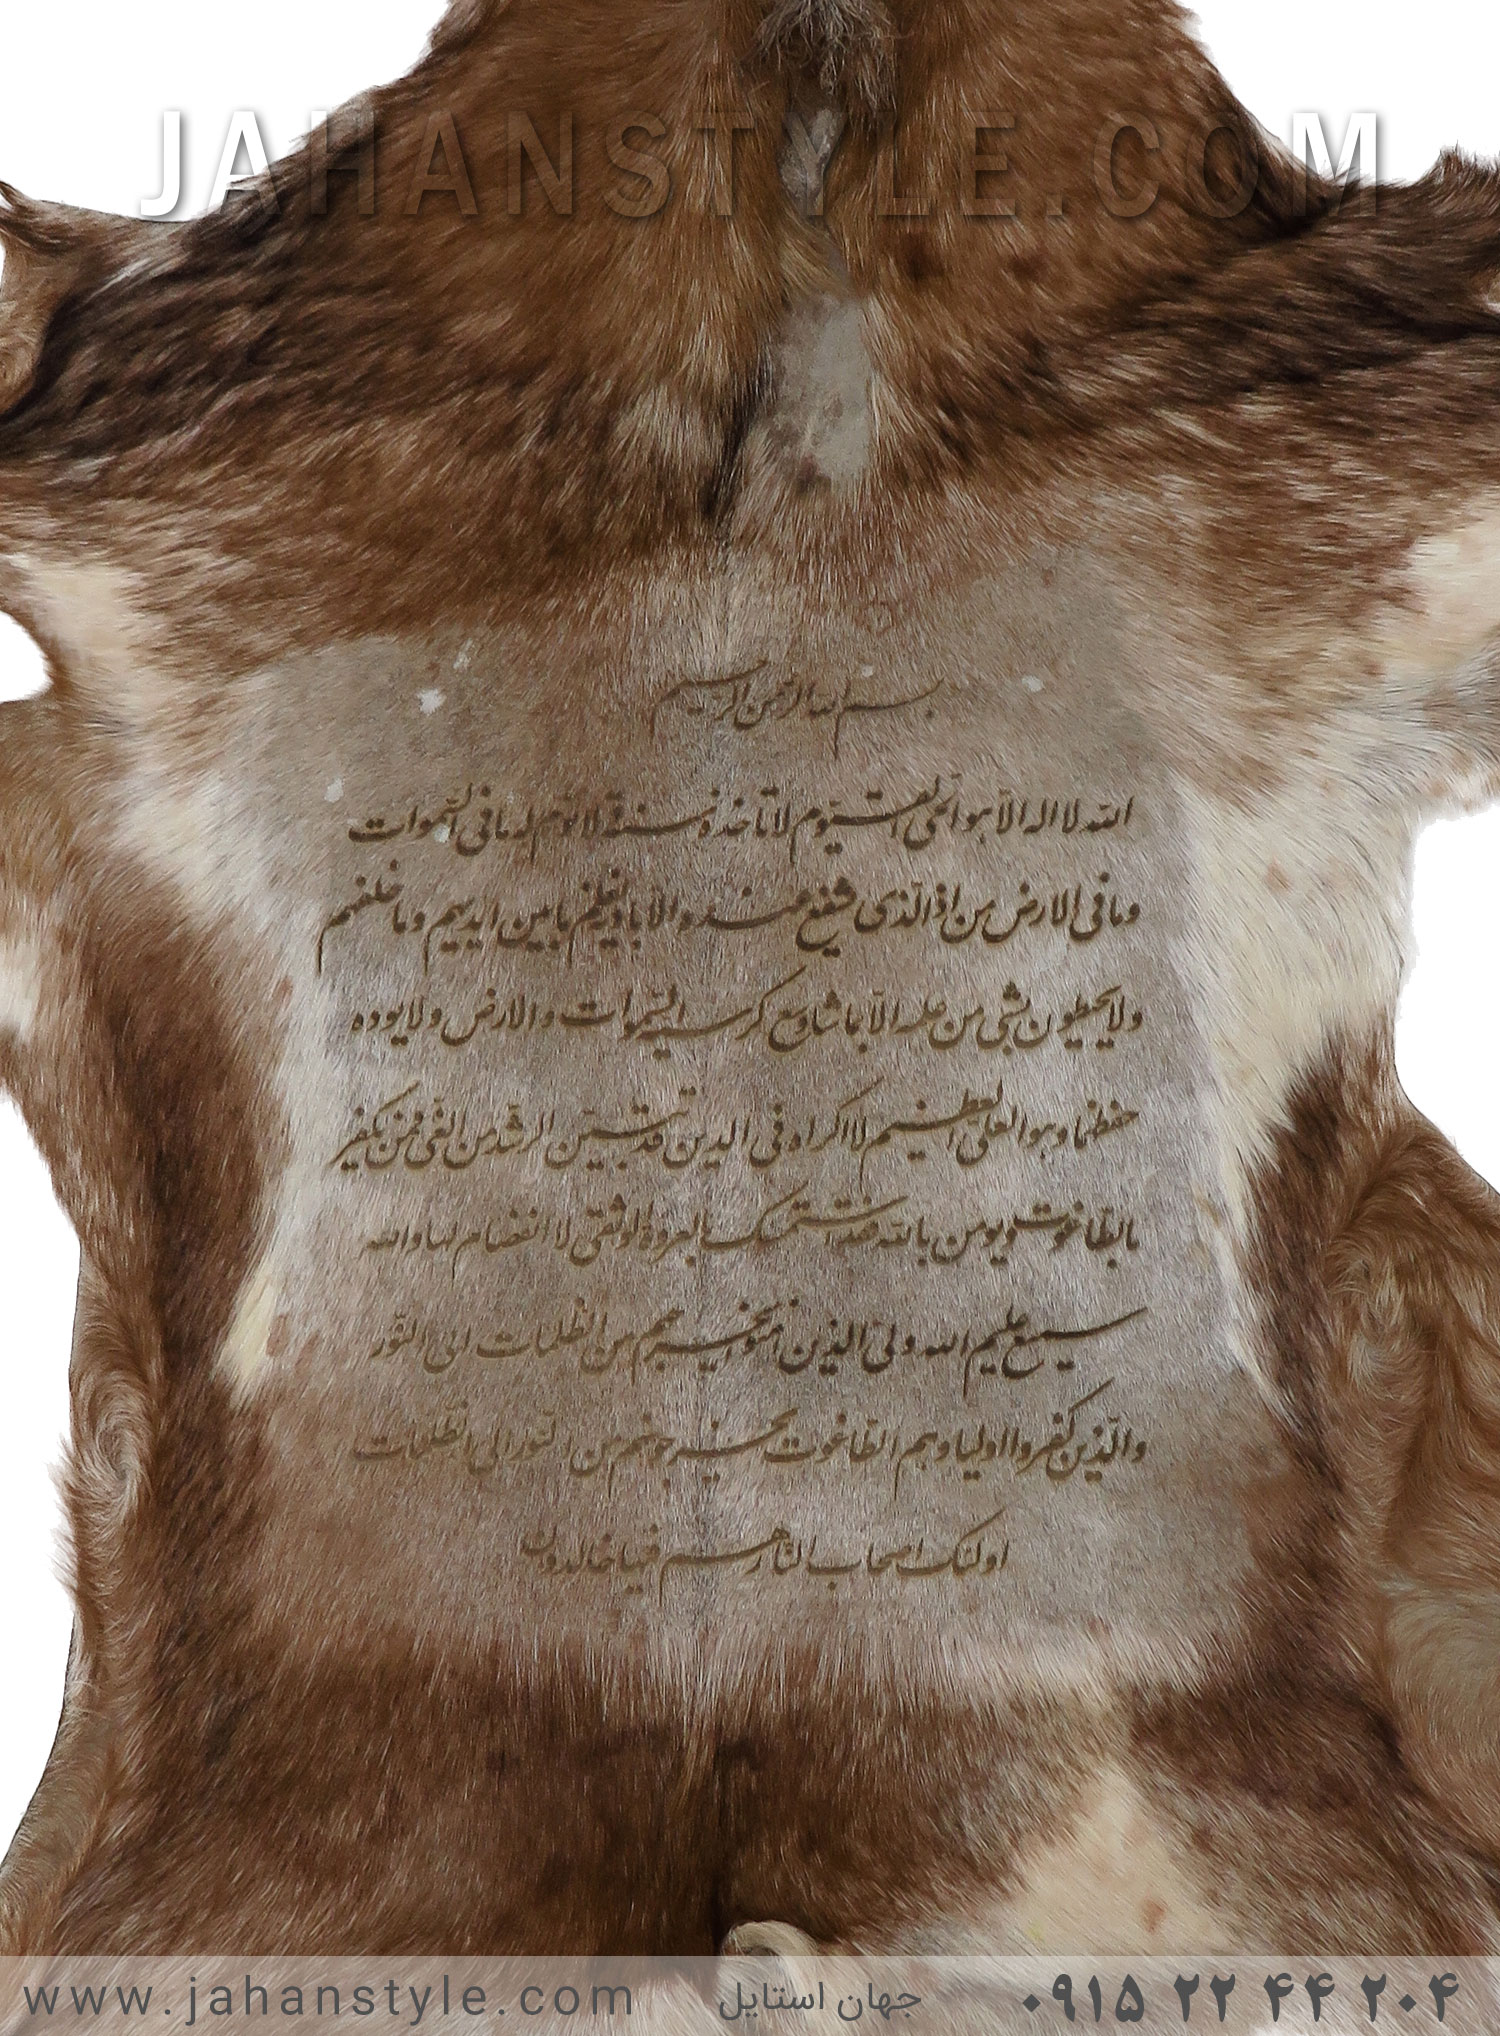 JAHANSTYLE.COM
بسم الله الرحمن الرحیم
الله لا اله الا هو الحی القیوم لا تاخذه سنة و لا نوم له ما فی السموات
و ما فی الارض من ذا الذی یشفع عنده الا باذنه یعلم ما بین ایدیهم و ما خلفهم
و لا یحیطون بشی من علمه الا بما شا وسع کرسیه السموات و الارض و لا یوده
حفظهما و هو العلی العظیم لا اکراه فی الدین قد تبین الرشد من الغی فمن یکفر
بالطاغوت و یومن بالله فقد استمسک بالعروة الوثقی لا انفصام لها و الله
سمیع علیم الله ولی الذین امنوا یخرجهم من الظلمات الی النور
و الذین کفروا اولیاوهم الطاغوت یخرجونهم من النور الی الظلمات
اولئک اصحاب النار هم فیها خالدون
www.jahanstyle.com جهان استایل ۰۹۱۵ ۲۲ ۴۴ ۲۰۴